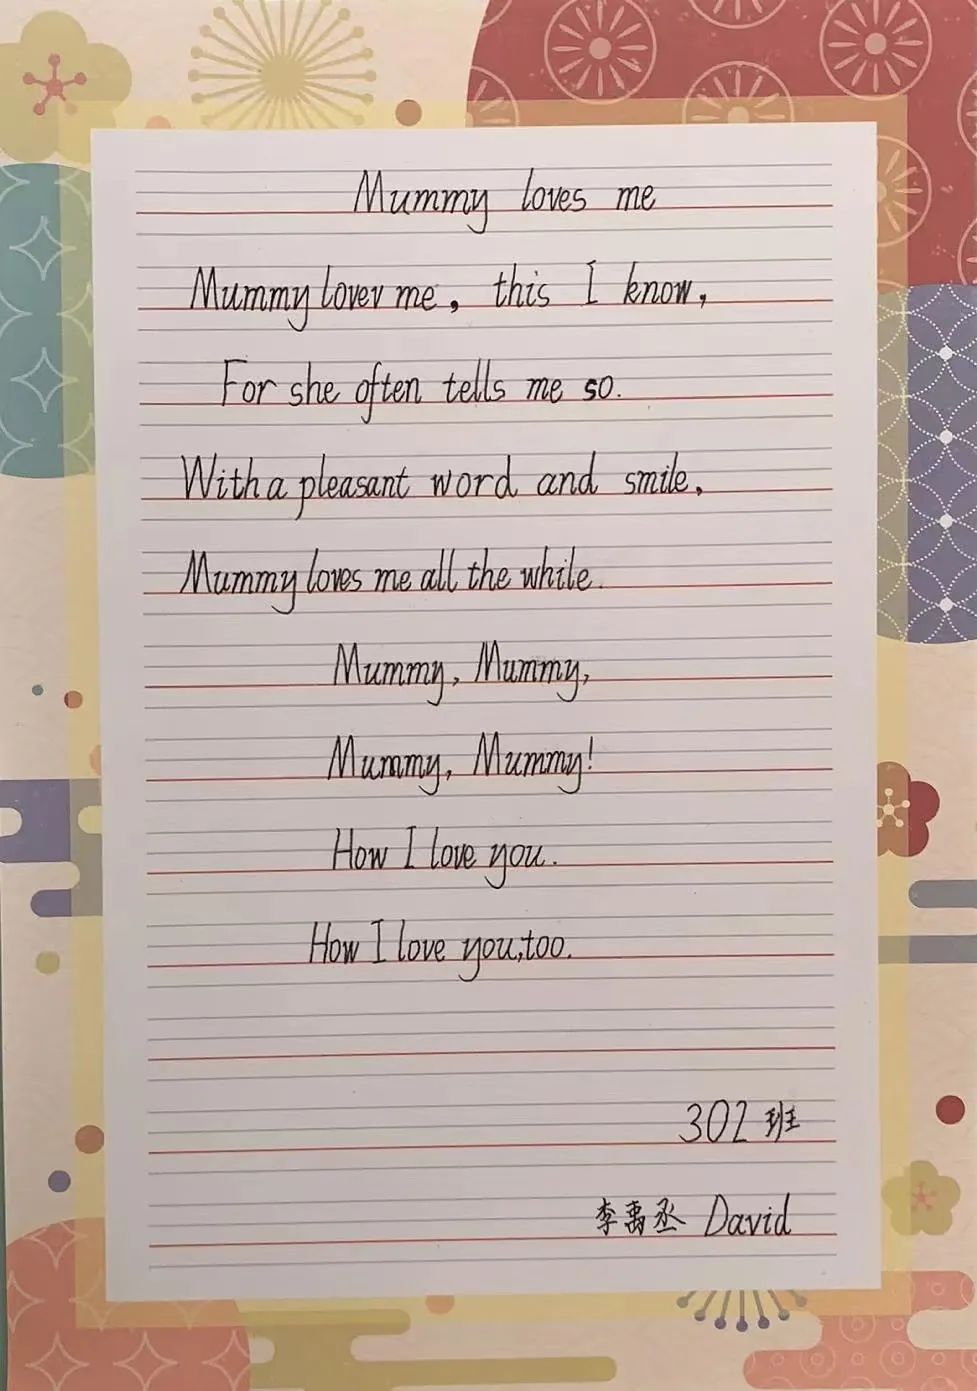 Mummy loves me
Mummy lover me, this I know,
For she often tells me so.
With a pleasant word and smile,
Mummy loves me all the while.
Mummy, Mummy,
Mummy, Mummy!
How I love you.
How I love you,too.
302 班
李禹丞 David